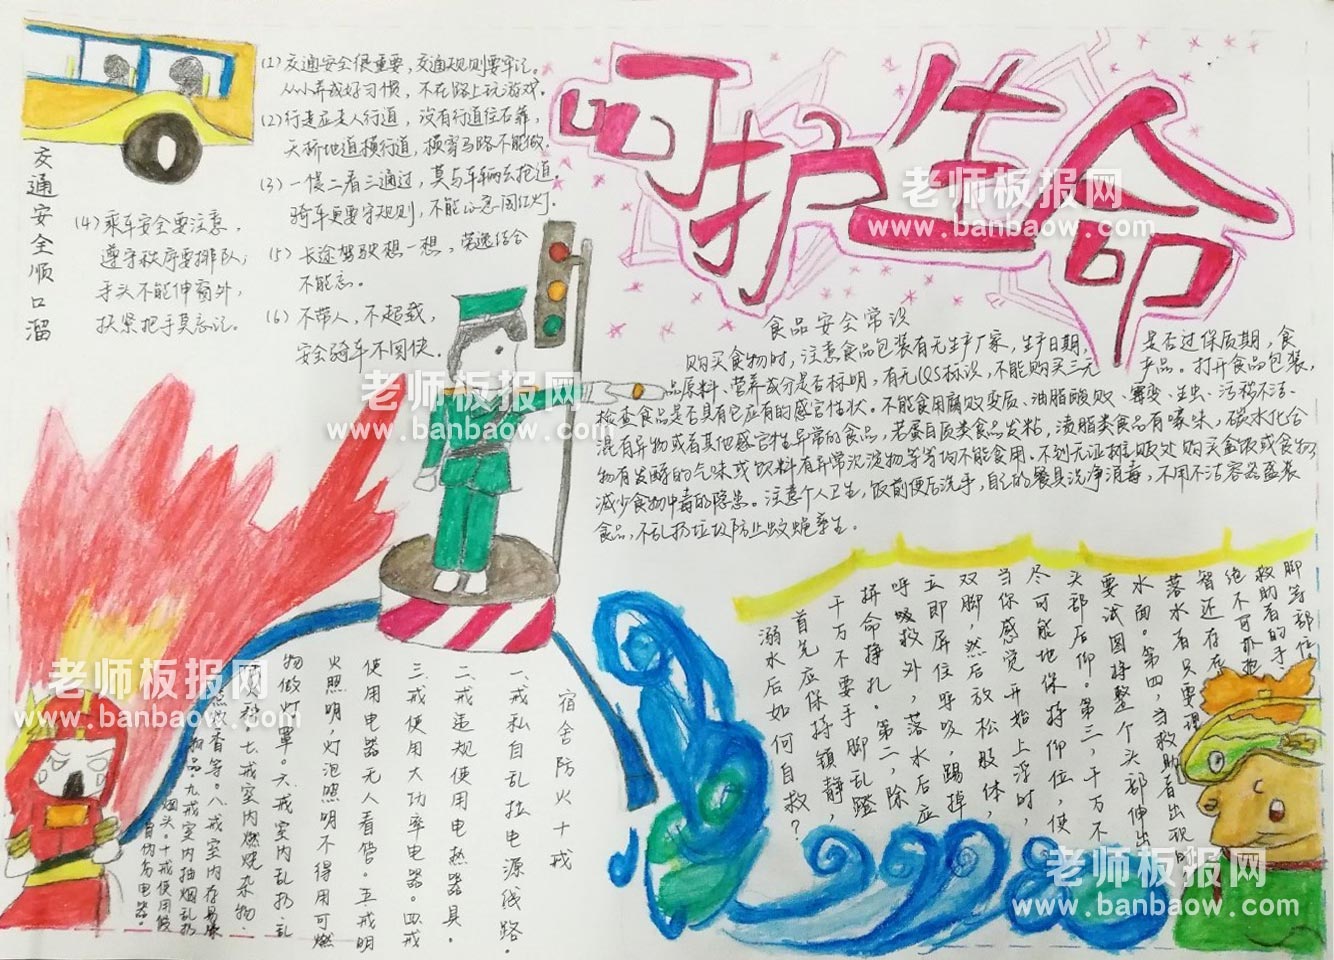 呵护生命
交通安全顺口溜
(1) 交通安全很重要，交通规则要牢记。
从小养成好习惯，不在路上玩游戏。
(2) 行走应走人行道，没有行道往右靠，
天桥地道横行道，横穿马路不能做。
(3) 一慢二看三通过，莫与车辆去抢道。
骑车更要守规则，不能心急闯红灯。
(4) 乘车安全要注意，
遵守秩序要排队；
手头不能伸窗外，
扶紧把手莫忘记。
(5) 长途驾驶想一想，劳逸结合
不能忘。
(6) 不带人，不超载，
安全骑车不图快。
食品安全常识
购买食物时，注意食品包装有无生产厂家，生产日期，是否过保质期，食
品原料、营养成分是否标明，有无QS标识，不能购买三无产品。打开食品包装，
检查食品是否具有它应有的感官性状。不能食用腐败变质、油脂酸败、霉变、生虫、污秽不洁、
混有异物或者其他感官性异常的食品，若蛋白质类食品发粘，渍脂类食品有嗓味，碳水化合
物有发酵的气味或饮料有异常沉淀物等等均不能食用。不到无证摊贩处购买盒饭或食物，
减少食物中毒的隐患。注意个人卫生，饭前便后洗手，自己的餐具洗净消毒，不用不洁容器盛装
食品，不乱扔垃圾防止蚊蝇孳生。
溺水后如何自救？
首先应保持镇静，
千万不要手脚乱蹬
拼命挣扎。第二，除
呼吸救外，落水后应
立即屏住呼吸，踢掉
双脚，然后放松肢体，
当你感觉开始上浮时，
尽可能地保持仰位，使
头部后仰。第三，千万不
要试图将整个头部伸出
水面。第四，当救助者出现时
落水者只要理
智还存在
绝不可亦抱
救助者的手
脚等部位
宿舍防火十戒
一、戒私自乱拉电源线路。
二、戒违规使用电热器具。
三、戒使用大功率电器。四、戒
使用电器无人看管。五、戒明
火照明，灯泡照明不得用可燃
物做灯罩。六、戒室内乱扔、乱
七、戒室内燃烧杂物、
香等。八、戒室内存易爆
物品九、戒室内抽烟乱扔
烟头。十、戒使用假
冒伪劣电器。
老师板报网
www.banbaow.com
老师板报网
www.banbaow.com
老师板报网
www.banbaow.com
老师板报网
www.banbaow.com